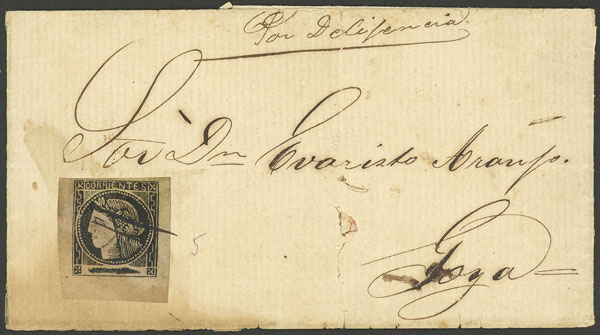 Por Delijencia.
Sor Dn Evaristo Araujo.
Goya
CORRIENTES
5